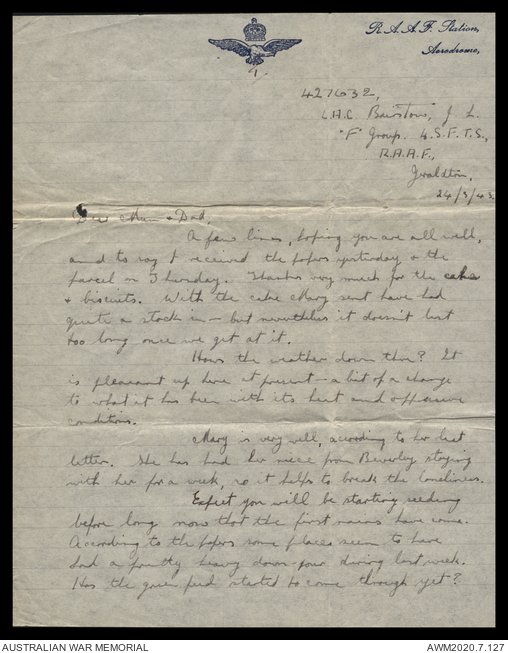 R.A.A.F. Station,
Aerodrome,
1.
427632,
L.A.C Bairstow, J L.
"F" Group. 4. S.F.T.S.,
R.A.A.F.,
Geraldton,
24/3/43.
Dear Mum & Dad,
A few lines, hoping you are all well,
and to say I received the papers yesterday & the
parcel on Thursday. Thanks very much for the cake
& biscuits. With the cake Mary sent have had
quite a stock in - but nevertheless it doesn't last
too long once we get at it.
Hows the weather down there? It
is pleasant up here at present - a bit of a change
to what it has been with its heat and oppressive
conditions.
Mary is very well, according to her last
letter. She has had her niece from Beverley staying
with her for a week, so it helps to break the loneliness.
Expect you will be starting seeding
before long now that the first rains have come.
According to the papers some places seem to have
had a pretty heavy down-pour during last week.
Has the green feed started to come through yet?
AUSTRALIAN WAR MEMORIAL
AWM2020.7.127